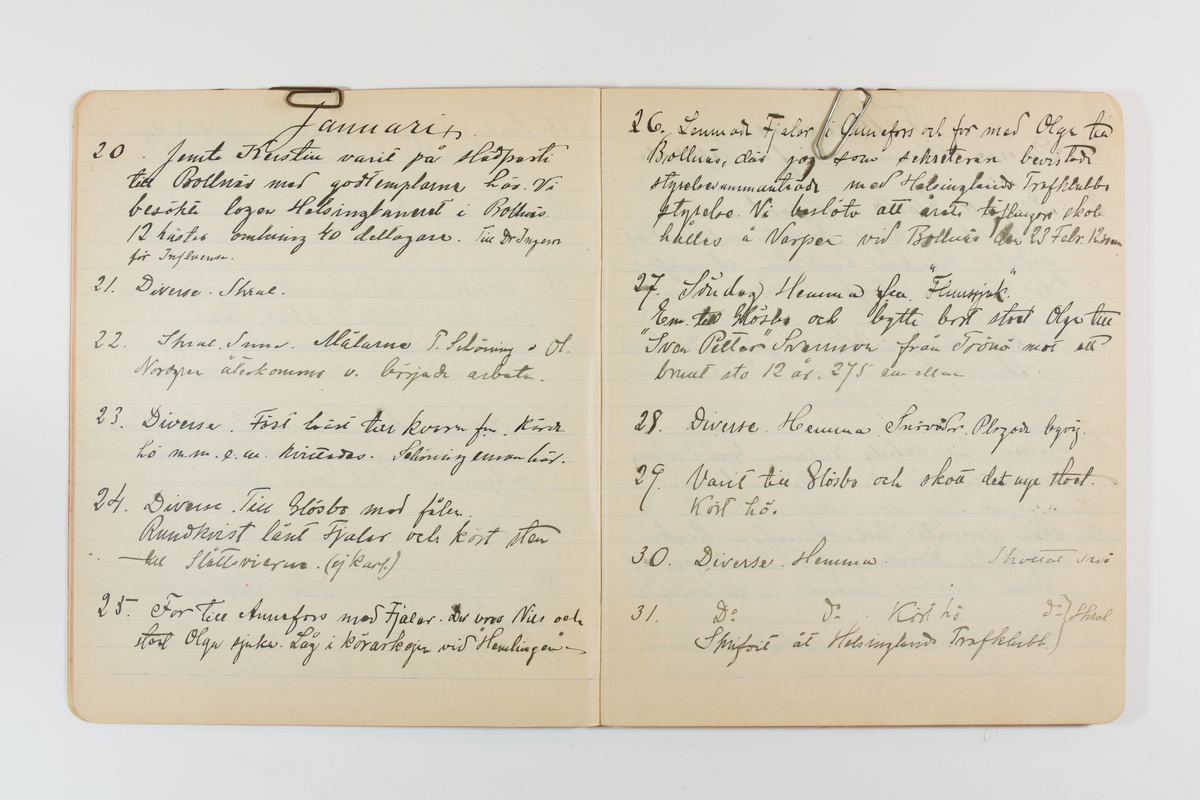 Januari.
20. Jemte Kerstin varit på slädparti
till Bollnäs med godtemplarna här. Vi
besökte logen Helsingbaneret i Bollnäs.
12 hästar omkring 40 deltagare. Till Dr
för Influensa.
21. Diverse. Skral.
22. Skral. Inne. Målarne T. Schöning o Ol.
Nordgren återkommo o. började arbeta.
23. Diverse. Föst till kvarn fm. Körde
hö m.m. e.m. Schöning ensam här.
24. Diverse. Till Glösbo med fålen.
Rundkvist lånt Fjalar och kört sten
till Slåttsvierne. (ej karl)
25. For till Annefors med Fjalar. Der voro Nils och
stoet Olga sjuka. Låg i körarkojan vid Hemlingån
26. Lemnade Fjalar i Annefors och for med Olga till
Bollnäs, där jag som sekreterare bevistade
styrelsesammanträde med Helsinglands Trafklubbs
styrelse. Vi beslöto att årets täflingar skole
hålles å Varpen vid Bollnäs den 23 Febr. 12
27. Söndag. Hemma fm.
Em. till Glösbo och bytte bort stoet Olga till
"Sven Petter" Svensson från Trönö mot ett
brunt sto 12 år. 275 emellan.
28. Diverse. Hemma. Snöväder. Plogade
29. Varit till Glösbo och skott det nye stoet.
Kört hö.
30. Diverse. Hemma. Skottat snö
31. Do do Kört hö do } Skral
Skrifvit åt Helsinglands Trafklubb.